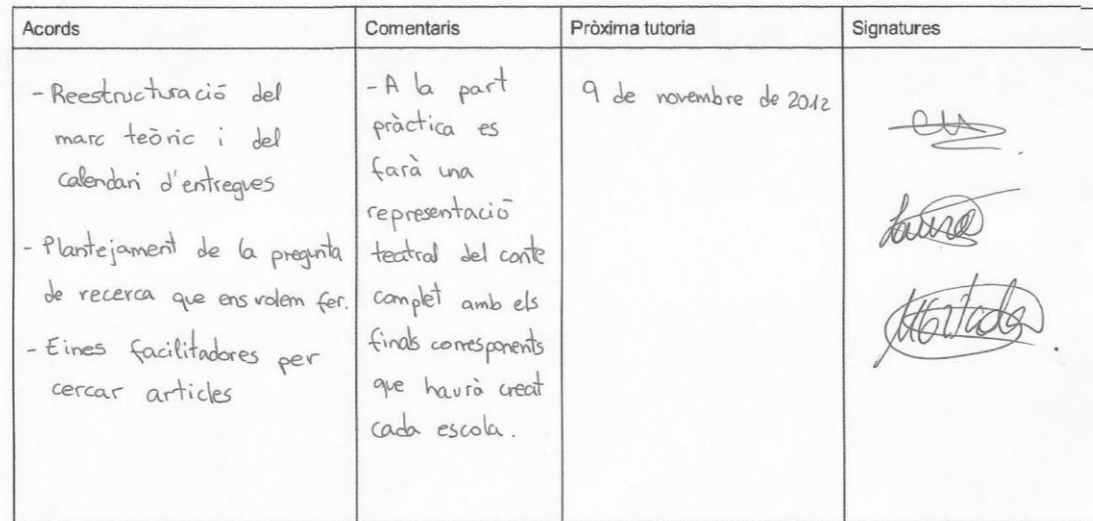 Acords
Comentaris
Pròxima tutoria
Signatures
- Reestructuració del
marc teòric i del
calendari d'entregues
- Plantejament de la pregunta
de recerca que ens volem fer.
- Eines facilitadores per
cercar articles
- A la part
pràctica es
farà una
representació
teatral del conte
complet amb els
finals corresponents
que haurà creat
cada escola.
9 de novembre de 2012
Laura